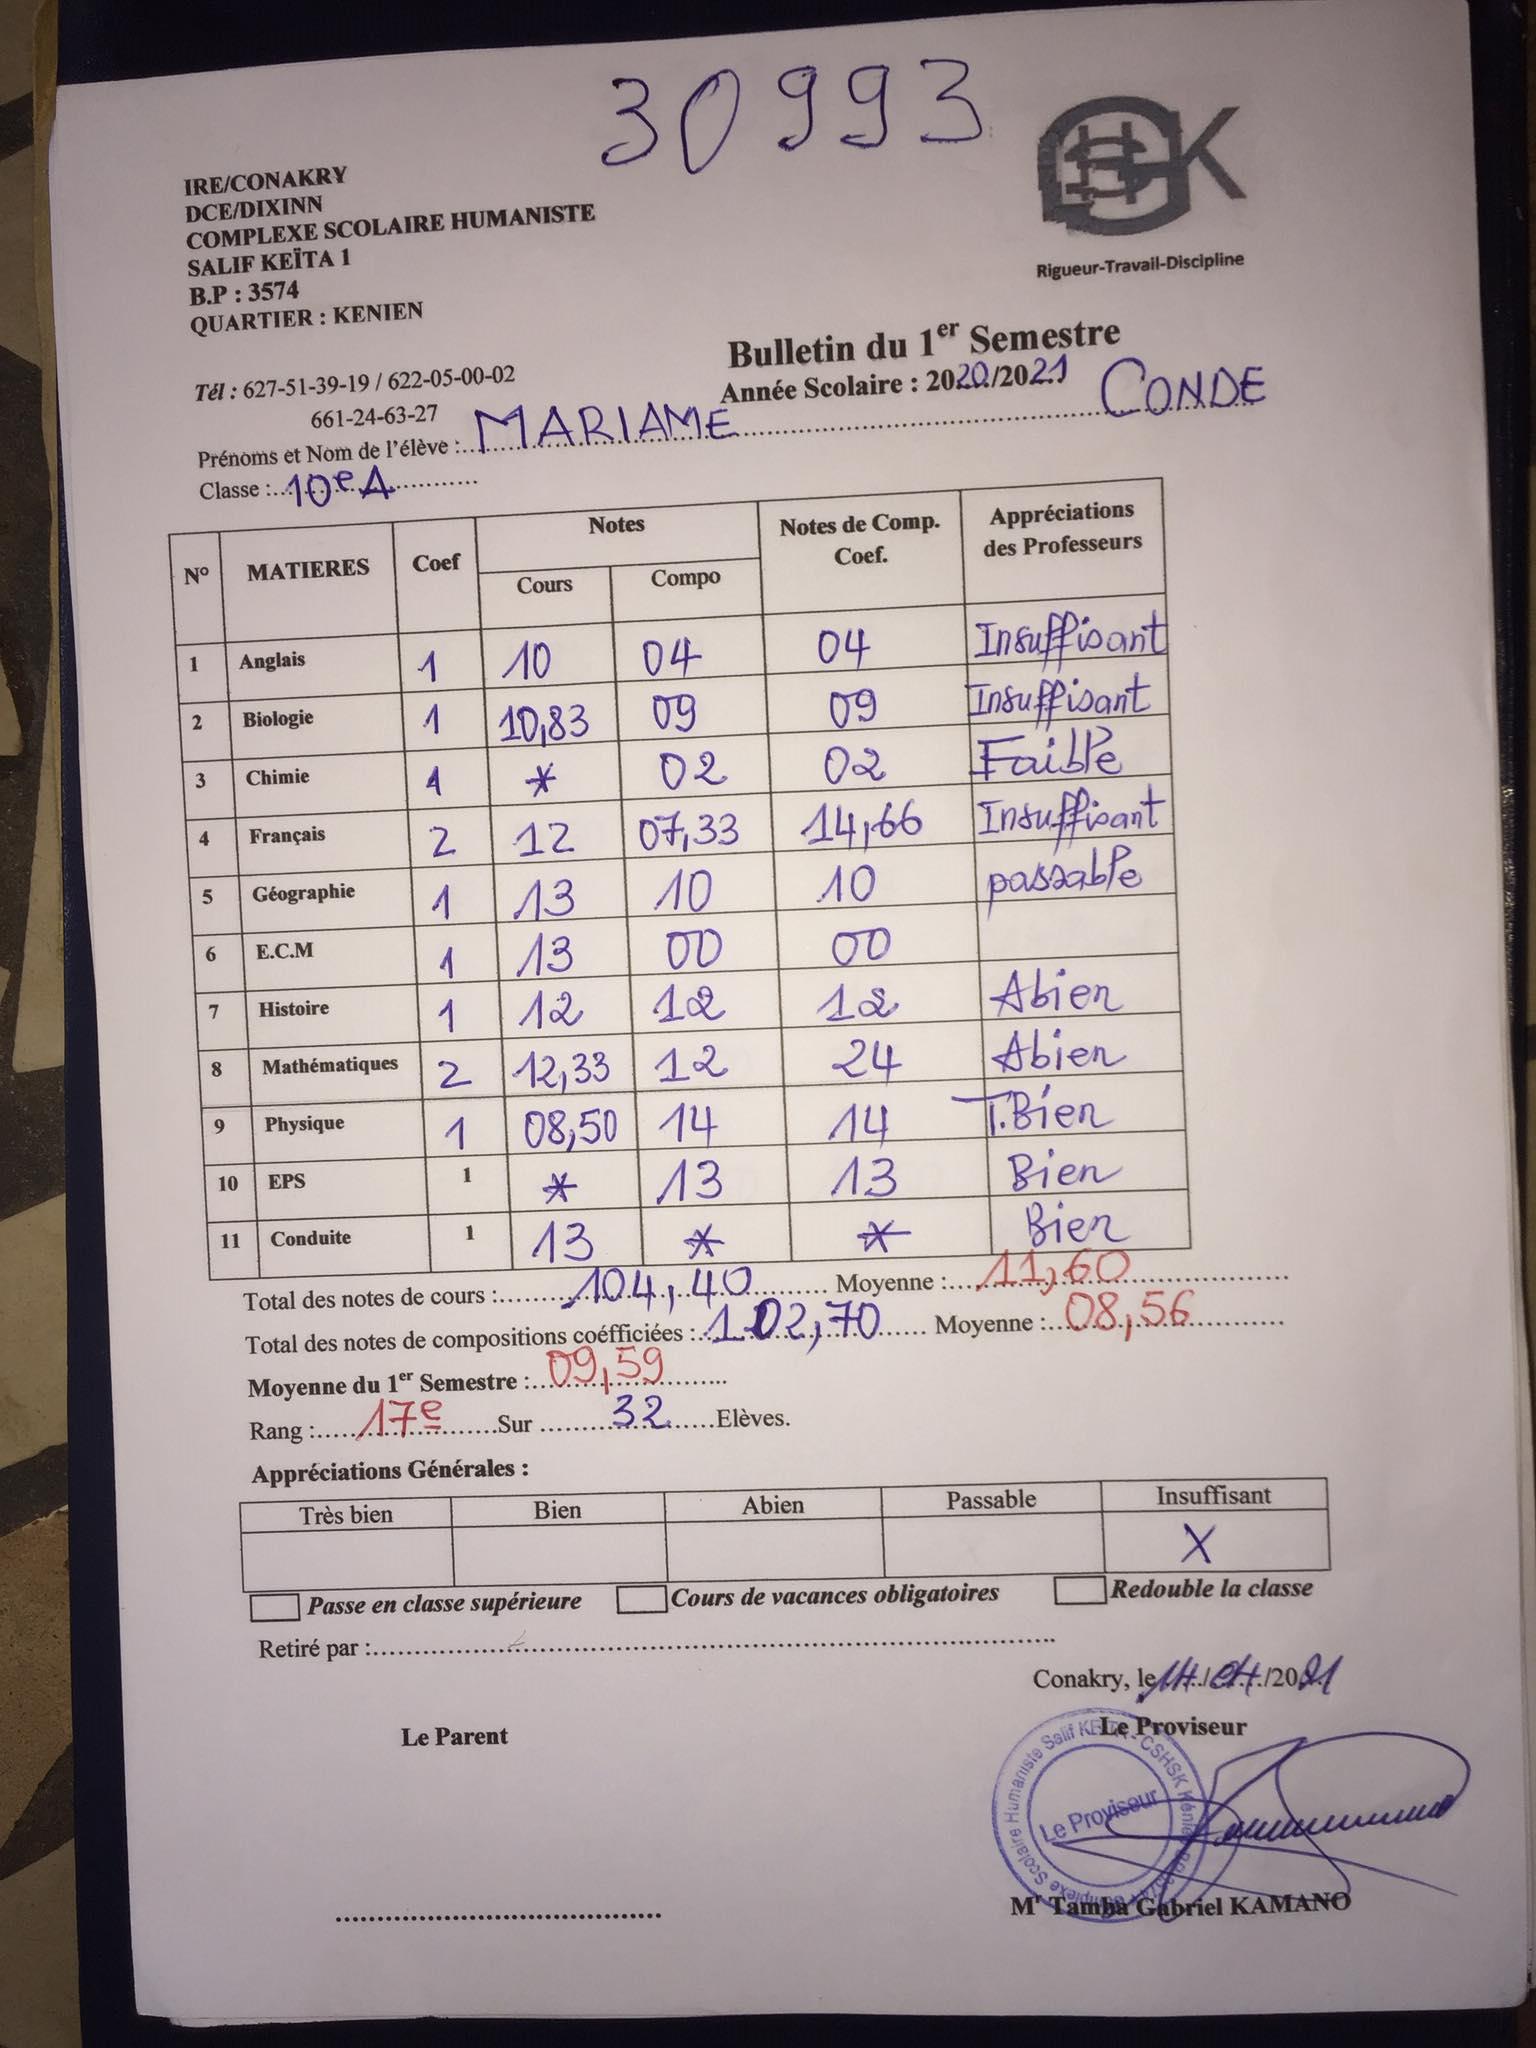 30993
IRE/CONAKRY
DCE/DIXINN
COMPLEXE SCOLAIRE HUMANISTE
SALIF KEÏTA 1
B.P : 3574
QUARTIER : KENIEN
Rigueur-Travail-Discipline
Bulletin du 1er Semestre
Tél : 627-51-39-19 / 622-05-00-02
Année Scolaire : 2020/2021
661-24-63-27
Prénoms et Nom de l'élève : MARIAME CONDE
Classe : 10e A
N° MATIERES Coef Notes Notes de Comp. Coef. Appréciations des Professeurs
Cours Compo
1 Anglais 1 10 04 04 Insuffisant
2 Biologie 1 10,83 09 09 Insuffisant
3 Chimie 1 * 02 02 Faible
4 Français 2 12 07,33 14,66 Insuffisant
5 Géographie 1 13 10 10 passable
6 E.C.M 1 13 00 00
7 Histoire 1 12 12 12 Abien
8 Mathématiques 2 12,33 12 24 Abien
9 Physique 1 08,50 14 14 T.Bien
10 EPS 1 * 13 13 Bien
11 Conduite 1 13 * * Bien
Total des notes de cours : 104,40 Moyenne : 11,60
Total des notes de compositions coéfficiées : 102,70 Moyenne : 08,56
Moyenne du 1er Semestre : 09,59
Rang : 17e Sur 32 Elèves.
Appréciations Générales :
Très bien Bien Abien Passable Insuffisant
X
Passe en classe supérieure Cours de vacances obligatoires Redouble la classe
Retiré par :
Conakry, le 14/04/2021
Le Parent Le Proviseur
Complexe Scolaire Humaniste Salif KEITA - CSHSK
Le Proviseur
Mr Tamba Gabriel KAMANO